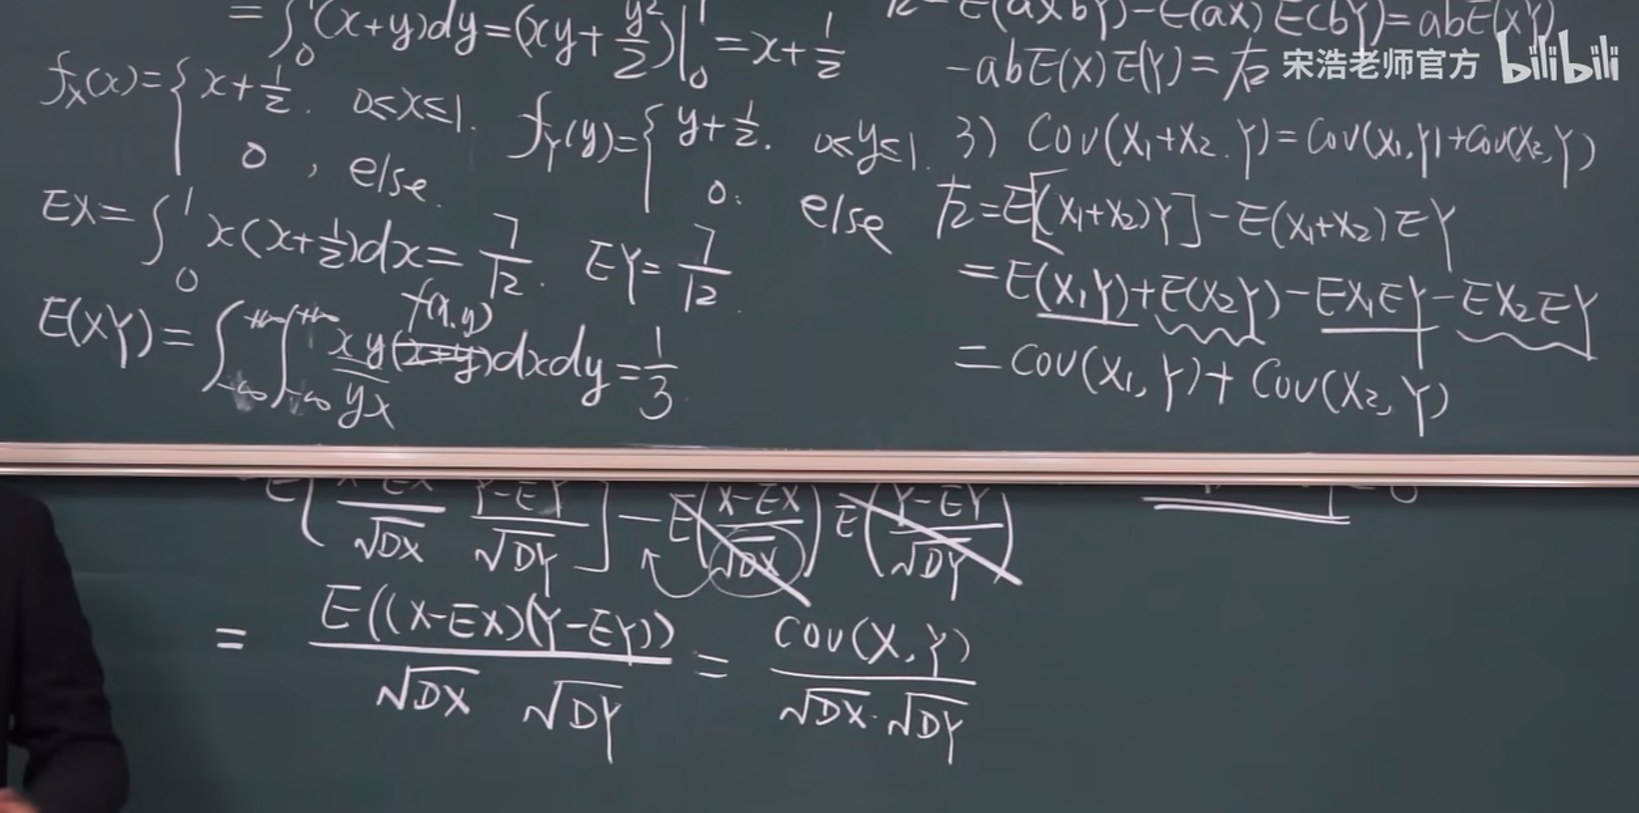 = ∫₀¹(x+y)dy=(xy+y²/2)|₀¹=x+1/2
f_X(x)={x+1/2. 0≤x≤1.
0, else.
f_Y(y)={y+1/2. 0≤y≤1.
0. else
EX=∫₀¹x(x+1/2)dx=7/12. EY=7/12.
E(XY)=∫₋∞⁺∞∫₋∞⁺∞xy(x+y)dxdy=1/3
f(x.y)
yx
左=E(aXbY)-E(aX)E(bY)=abE(XY)
-abE(X)E(Y)=右
宋浩老师官方 bilibili
3) Cov(X₁+X₂.Y)=Cov(X₁,Y)+Cov(X₂,Y)
左=E[(X₁+X₂)Y]-E(X₁+X₂)EY
=E(X₁Y)+E(X₂Y)-EX₁EY-EX₂EY
=Cov(X₁,Y)+Cov(X₂,Y)
E[(X-EX)/√DX (Y-EY)/√DY]-E((X-EX)/√DX)E((Y-EY)/√DY)
=E((X-EX)(Y-EY))/(√DX √DY)=Cov(X,Y)/(√DX·√DY)